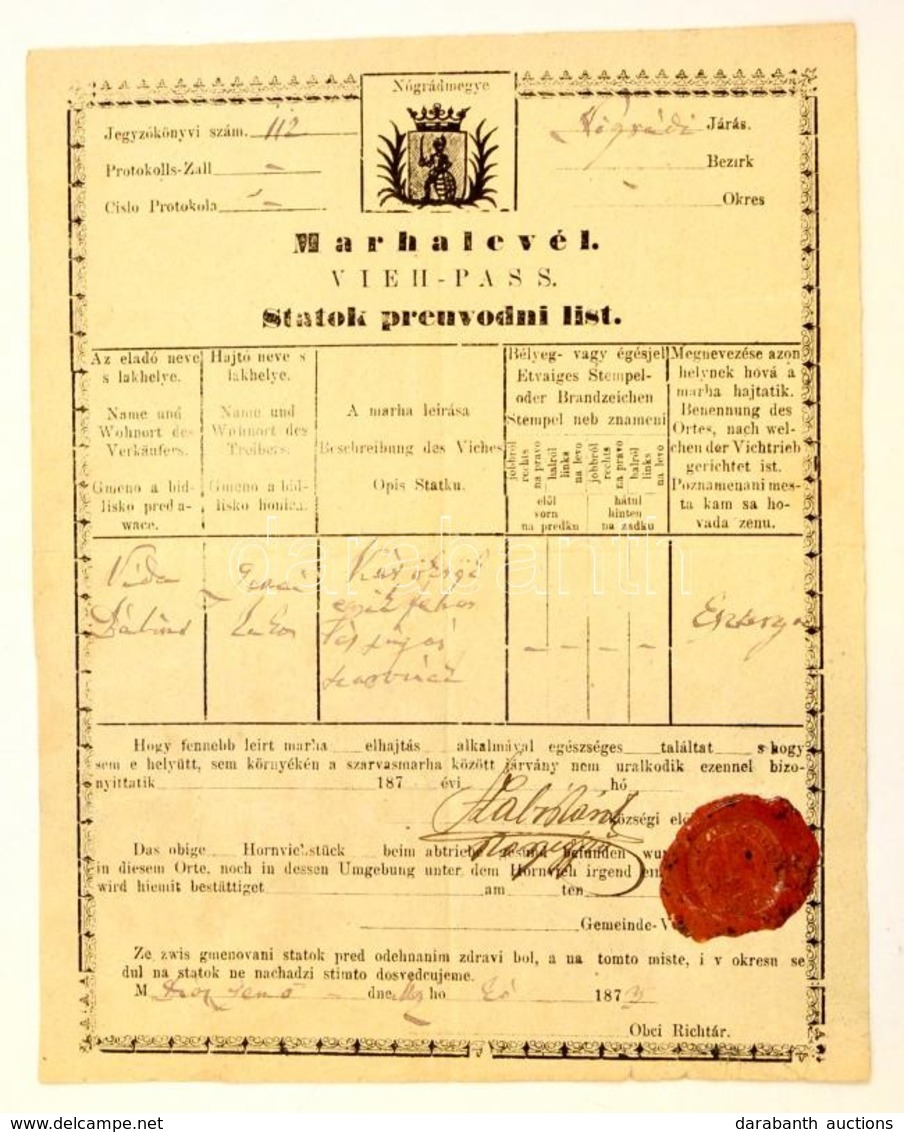 Nógrádmegye
Jegyzőkönyvi szám. 112
Protokolls-Zall
Cislo Protokola
Nógrádi Járás.
Bezirk
Okres
Marhalevél.
VIEH-PASS.
Statok preuvodni list.
Az eladó neve s lakhelye.
Name und Wohnort des Verkäufers.
Gmeno a bidlisko preda-wace.
Hajtó neve s lakhelye.
Name und Wohnort des Treibers.
Gmeno a bidlisko honica.
A marha leirása
Beschreibung des Viches
Opis Statku.
Bélyeg- vagy égésjel
Etvaiges Stempel-
oder Brandzeichen
Stempel neb znameni
jobbról rechts na pravo
balról links na levo
jobbról rechts na pravo
balról links na levo
elöl vorn na predku
hátul hinten na zadku
Megnevezése azon
helynek hová a
marha hajtatik.
Benennung des
Ortes, nach wel-
chen der Vichtrieb
gerichtet ist.
Poznamenani mes-
ta kam sa ho-
vada zenu.
Vida
darabanth
Hogy fennebb leirt marha elhajtás alkalmával egészséges találtat s hogy
sem e helyütt, sem környékén a szarvasmarha között járvány nem uralkodik ezennel bizo-
nyittatik 187 évi hó
községi elö
Das obige Hornviehstück beim abtrieb gesund befunden wur
in diesem Orte, noch in dessen Umgebung unter dem Hornvieh irgend ein
wird hiemit bestättiget am ten
Gemeinde-V
Ze zwis gmenovani statok pred odehnanim zdravi bol, a na tomto miste, i v okresu se
dul na statok ne nachadzi stimto dosvedcujeme.
M dne ho 187
Obci Richtár.
darabanth auctions